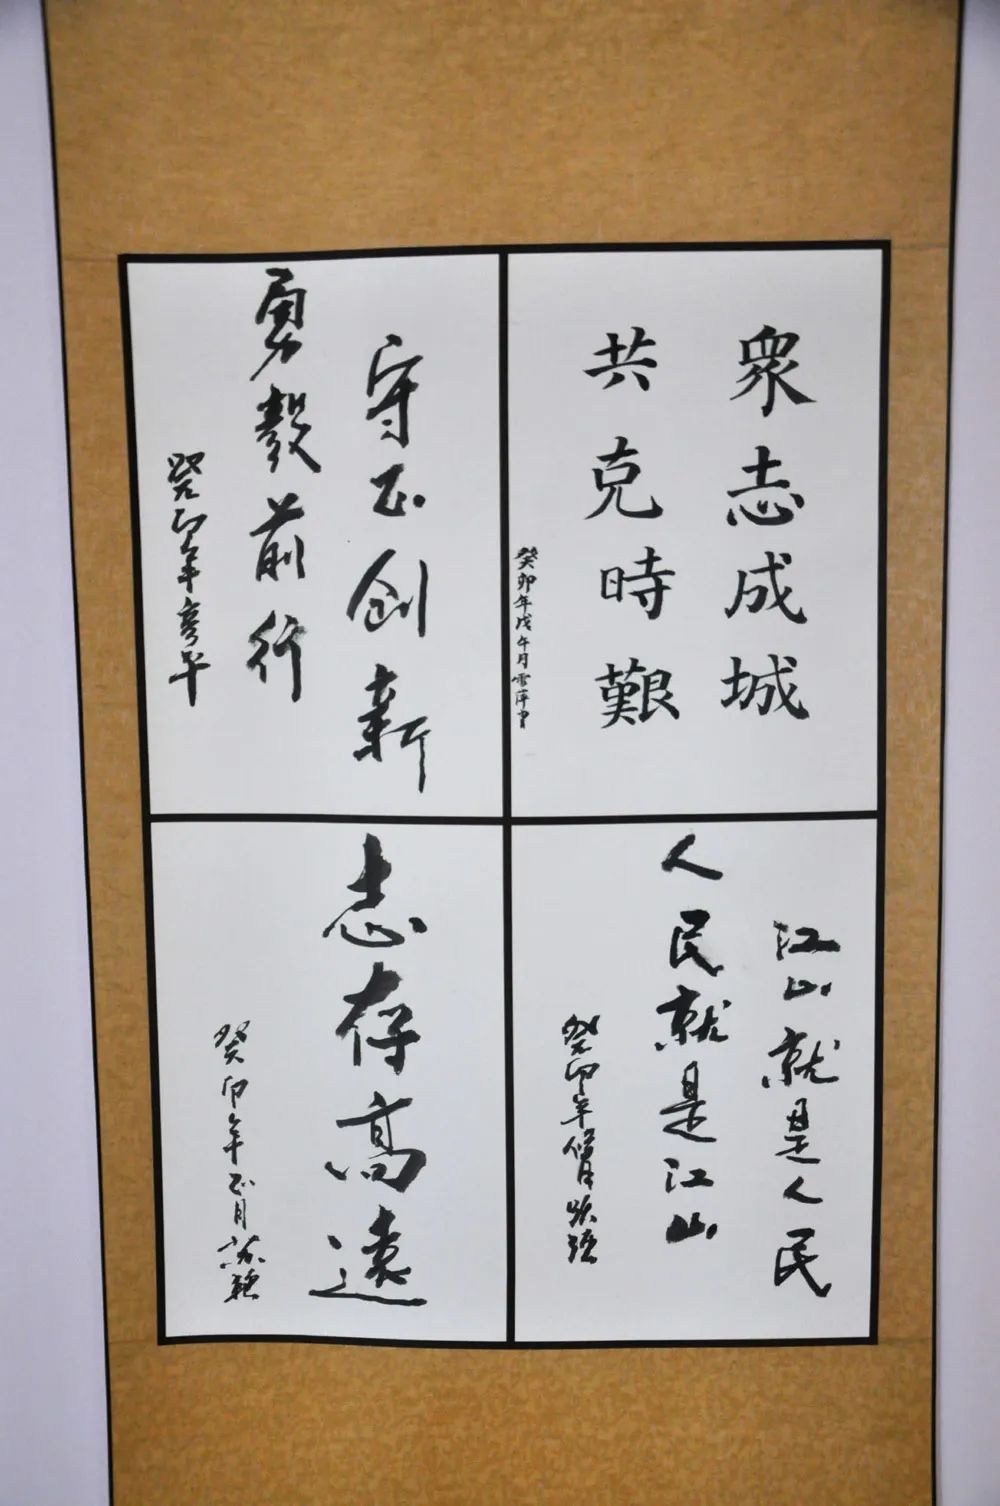 衆志成城
共克時艱
癸卯年戊午月雪萍書
守正创新
勇毅前行
癸卯年
江山就是人民
人民就是江山
癸卯年
志存高遠
癸卯年正月